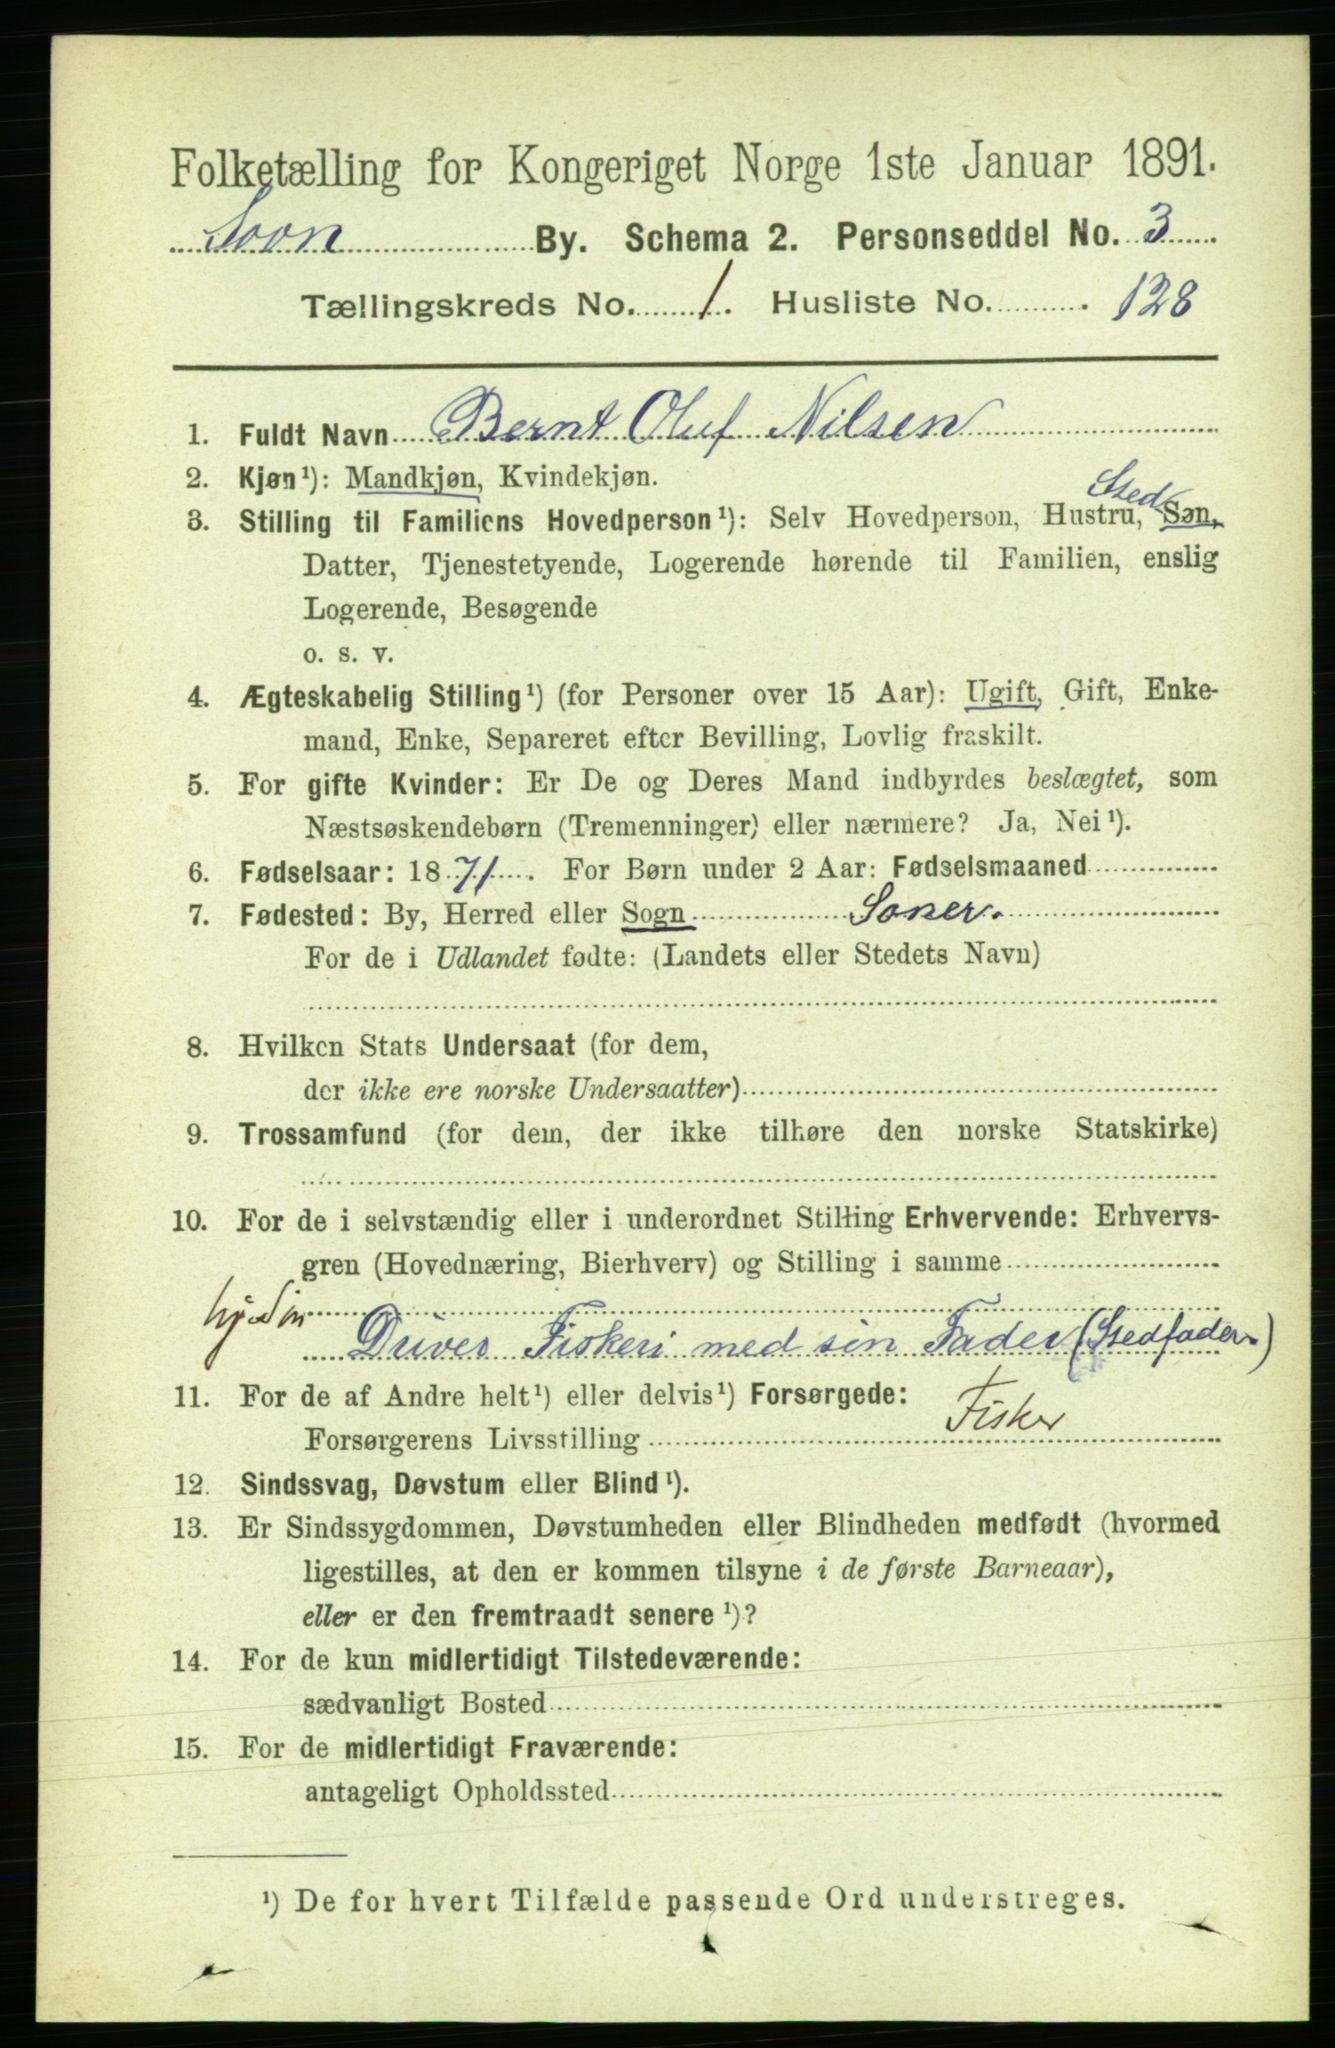 Folketælling for Kongeriget Norge 1ste Januar 1891.
Soon By. Schema 2. Personseddel No. 3
Tællingskreds No. 1. Husliste No. 128
1. Fuldt Navn Bernt Oluf Nilsen
2. Kjøn¹): Mandkjøn, Kvindekjøn.
Sted
3. Stilling til Familiens Hovedperson¹): Selv Hovedperson, Hustru, Søn,
Datter, Tjenestetyende, Logerende hørende til Familien, enslig
Logerende, Besøgende
o. s. v.
4. Ægteskabelig Stilling¹) (for Personer over 15 Aar): Ugift, Gift, Enke-
mand, Enke, Separeret efter Bevilling, Lovlig fraskilt.
5. For gifte Kvinder: Er De og Deres Mand indbyrdes beslægtet, som
Næstsøskendebørn (Tremenninger) eller nærmere? Ja, Nei¹).
6. Fødselsaar: 1871. For Børn under 2 Aar: Fødselsmaaned
7. Fødested: By, Herred eller Sogn Soner.
For de i Udlandet fødte: (Landets eller Stedets Navn)
8. Hvilken Stats Undersaat (for dem,
der ikke ere norske Undersaatter)
9. Trossamfund (for dem, der ikke tilhøre den norske Statskirke)
10. For de i selvstændig eller i underordnet Stilling Erhvervende: Erhvervs-
gren (Hovednæring, Bierhverv) og Stilling i samme
Driver Fiskeri med sin Fader (Stedfader)
11. For de af Andre helt¹) eller delvis¹) Forsørgede:
Forsørgerens Livsstilling Fisker
12. Sindssvag, Døvstum eller Blind¹).
13. Er Sindssygdommen, Døvstumheden eller Blindheden medfødt (hvormed
ligestilles, at den er kommen tilsyne i de første Barneaar),
eller er den fremtraadt senere¹)?
14. For de kun midlertidigt Tilstedeværende:
sædvanligt Bosted
15. For de midlertidigt Fraværende:
antageligt Opholdssted
¹) De for hvert Tilfælde passende Ord understreges.